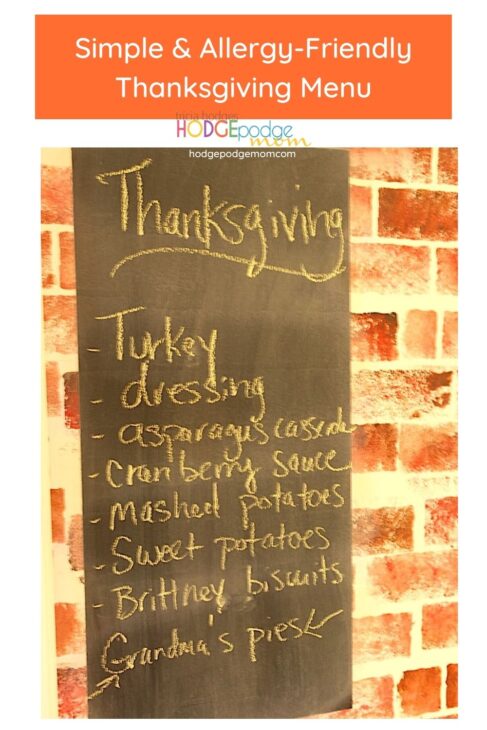 Simple & Allergy-Friendly
Thanksgiving Menu
tricia hodges
HODGEpodge
mom
hodgepodgemom.com
Thanksgiving
- Turkey
- dressing
- asparagus casserole
- cranberry sauce
- mashed potatoes
- Sweet potatoes
- Brittney biscuits
Grandma's pies